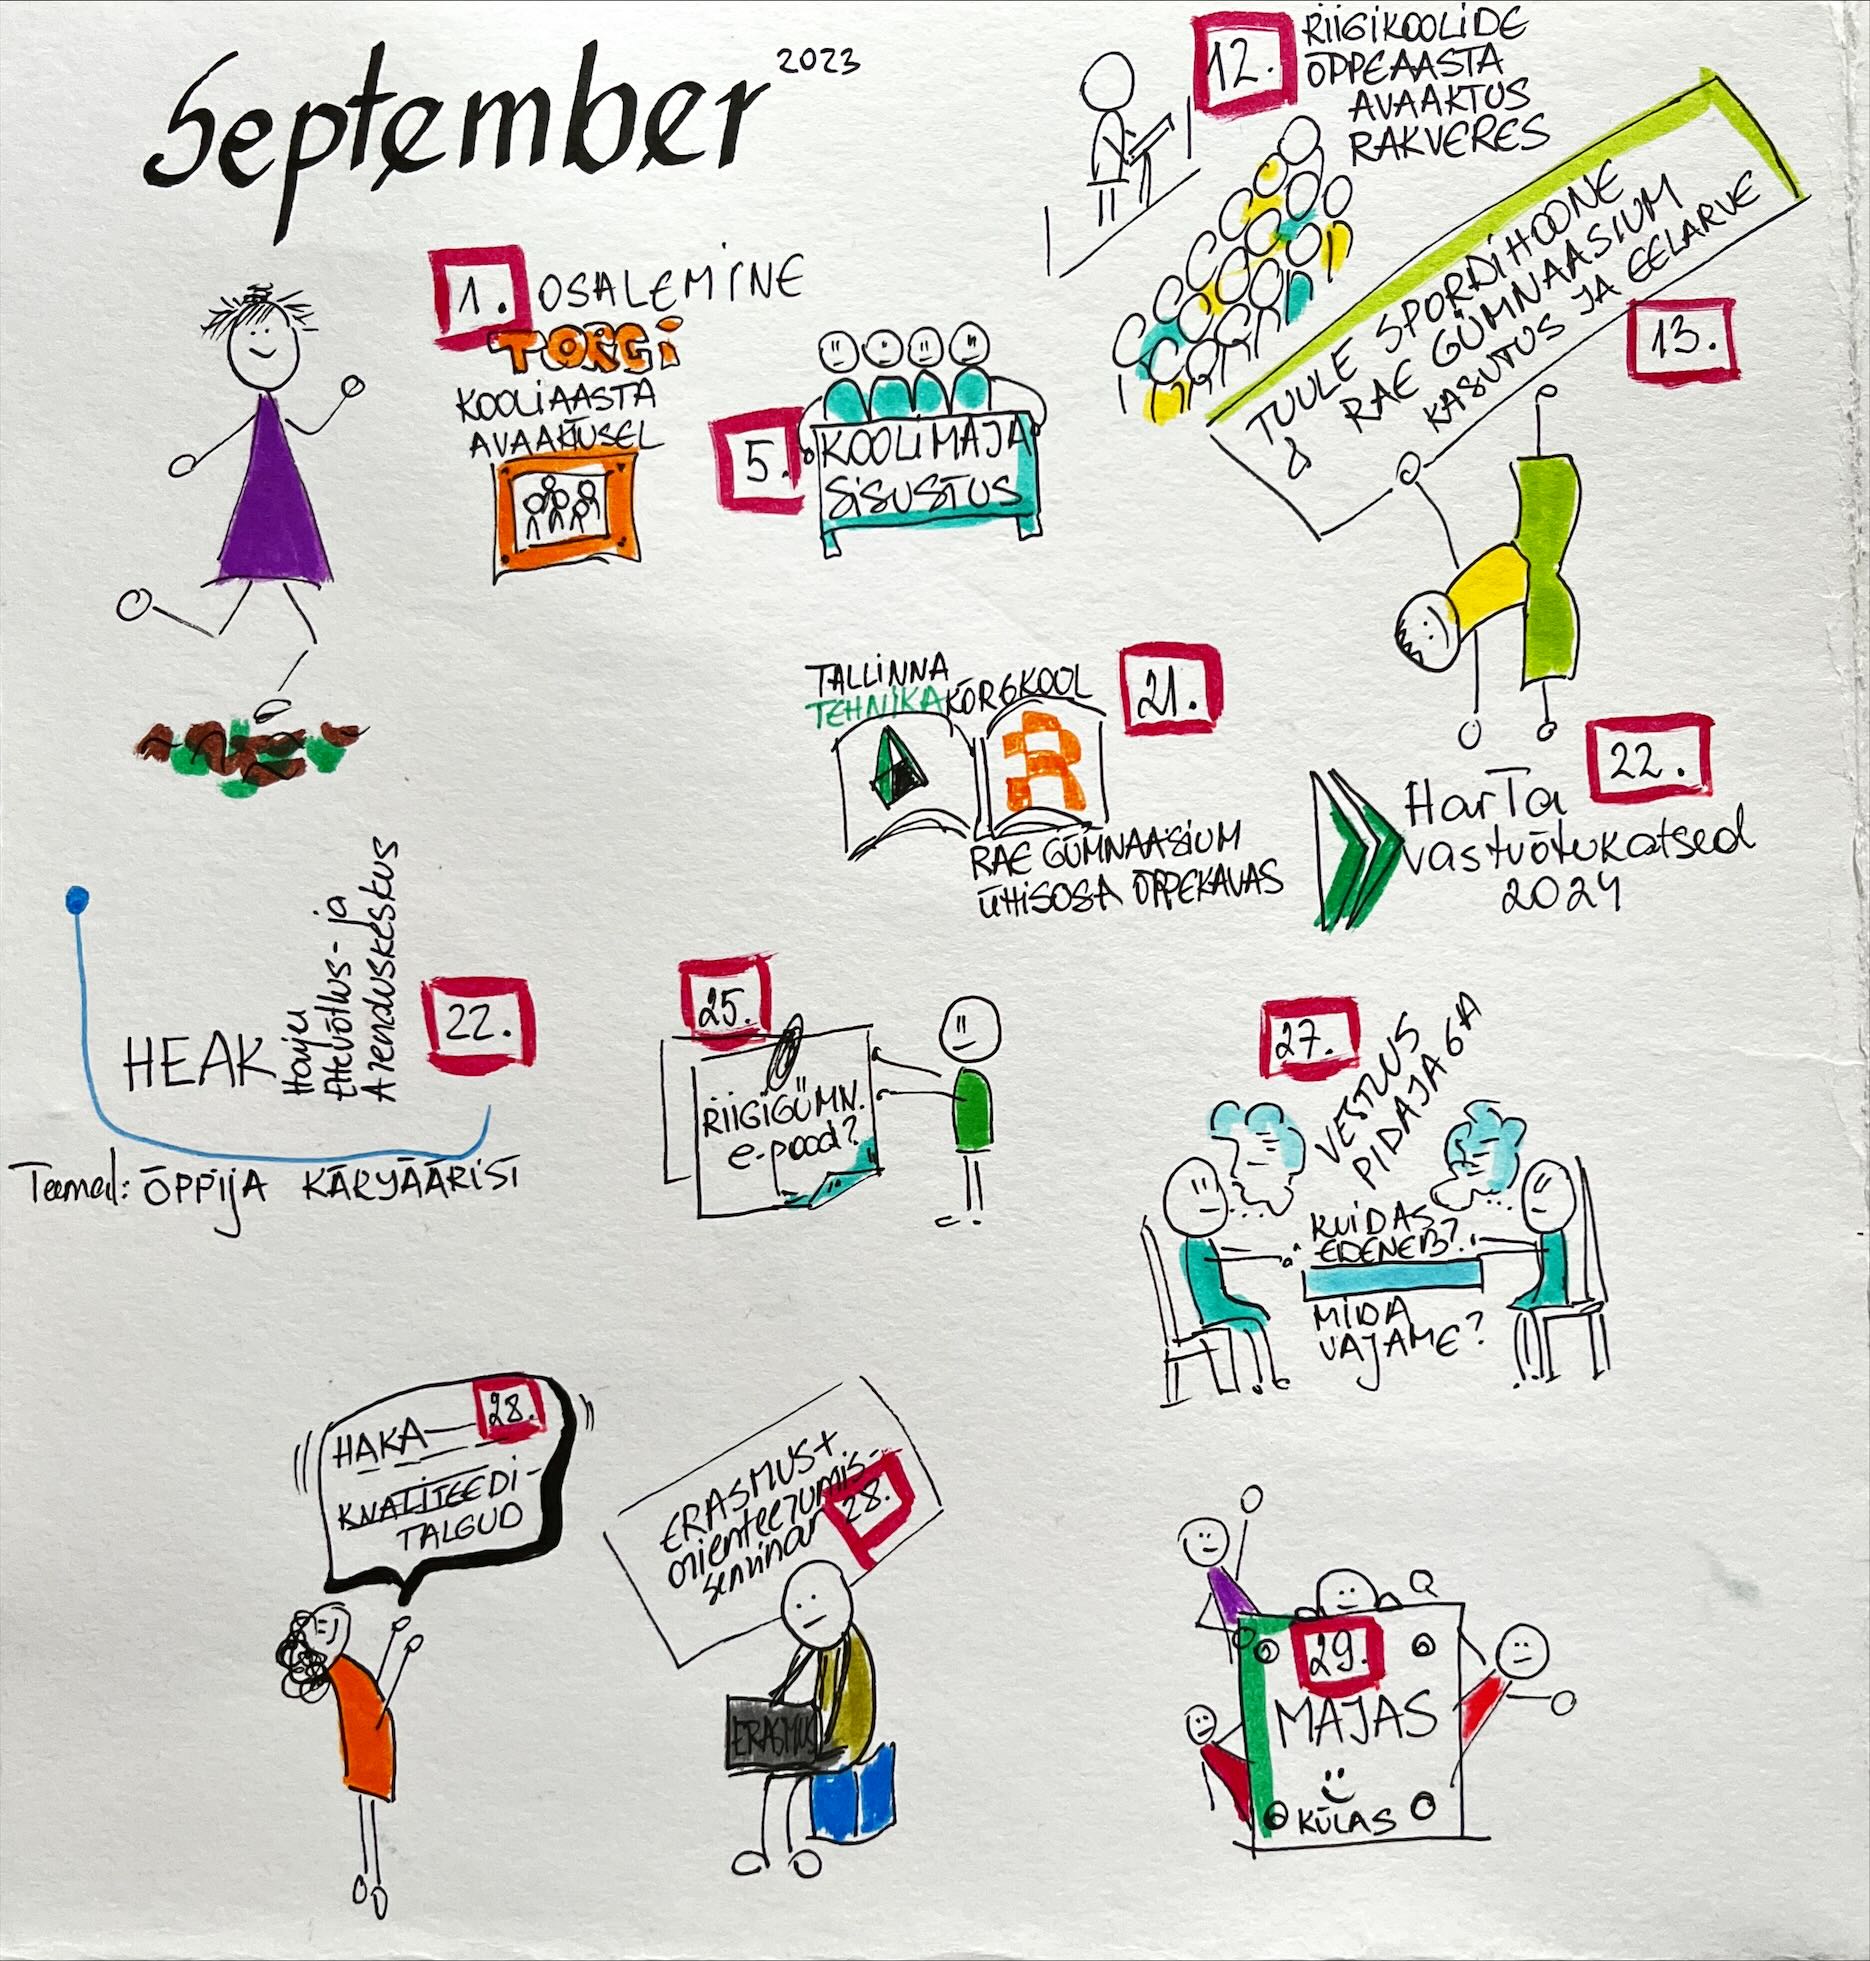 September 2023
12.
RIIGIKOOLIDE
ÕPPEAASTA
AVAAKTUS
RAKVERES
1. OSALEMINE
TORGI
KOOLIAASTA
AVAAKTUSEL
5.
KOOLIMAJA
SISUSTUS
TUULE SPORDIHOONE
& RAE GÜMNAASIUM
KASUTUS JA EELARVE
13.
TALLINNA
TEHNIKAKÕRGKOOL
21.
R
RAE GÜMNAASIUM
ÜHISOSA ÕPPEKAVAS
22.
HarTa
vastuõtukatsed
2024
HEAK
Harju
Ettevõtlus- ja
Arenduskeskus
22.
Teemad: ÕPPIJA KARJÄÄRIST
25.
RIIGIGÜMN.
e-pood?
27.
VESTLUS
PIDAJA GA
KUIDAS
EDENEB?
MIDA
VAJAME?
28.
HAKA
KVALITEEDI-
TALGUD
ERASMUS+
orienteerumis-
seminar 28.
ERASMUS
29.
MAJAS
KÜLAS